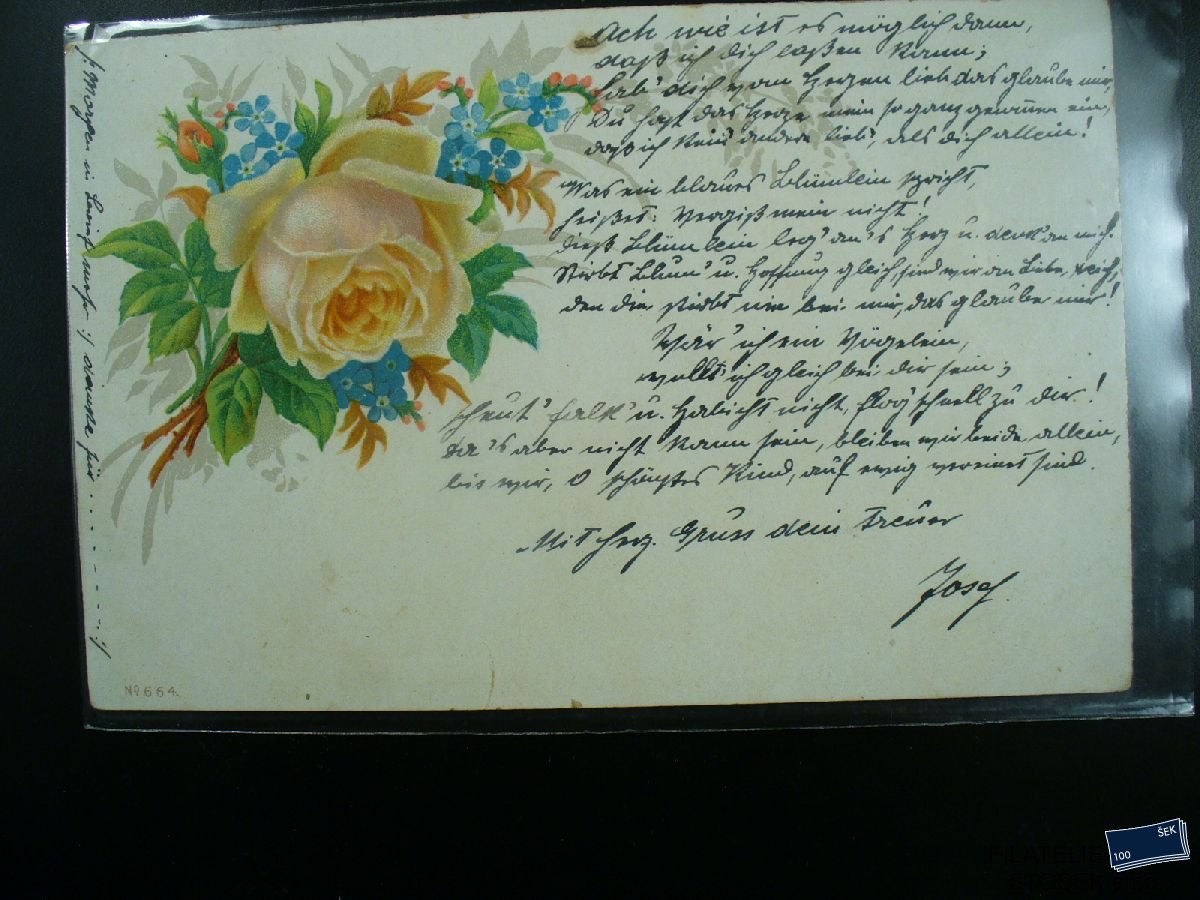 Ach wie ist es möglich dann,
daß ich dich laßen kann;
hab' dich von Herzen lieb das glaube mir,
Du hast das Herze mein so ganz genommen ein,
daß ich kein' andere lieb', als dich allein!
Was ein blaues Blümlein spricht,
heißet: Vergißmein nicht!
dieß Blümlein leg' an's Herz u. denk' an mich.
stirbt Blum' u. Hoffnung gleich, sind wir an Liebe reich,
den die stirbt nie bei mir, das glaube mir!
Wär' ich ein Vögelein,
wollt ich gleich bei dir sein;
scheut' Falk' u. Habicht nicht, flög schnell zu dir!
da's aber nicht kann sein, bleiben wir beide allein,
bis wir, o schönstes Kind, auf ewig vereint sind.
Mit herz. Gruss dein treuer
Josef.
/: Morgen ein Brief mehr :/ danke für . . . . . . . . . . :/
No 664.
100 ŠEK
FILATELIE
STOSEK s.r.o.